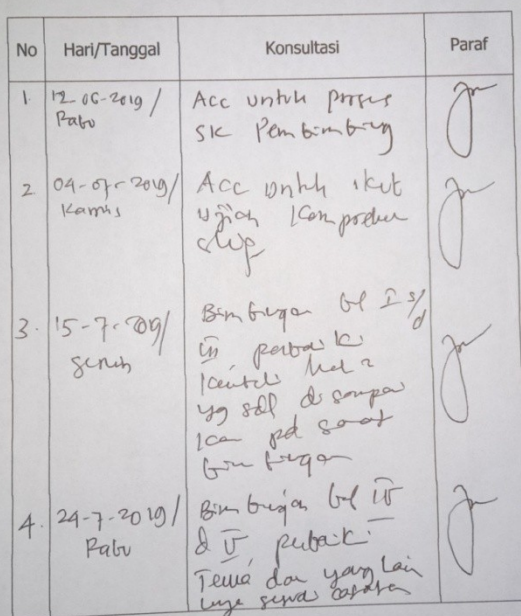 No Hari/Tanggal Konsultasi Paraf
1. 12-06-2019/ Acc untuk proses
Rabu SK Pembimbing
2 04-07-2019/ Acc untuk ikut
Kamis ujian Komprehen
sif
3. 15-7-2019/ Bimbingan bab I s/d
Senin III perbaiki
hal2
yg sdh disampai
kan pd saat
bimbingan
4. 24-7-2019/ Bimbingan bab IV
Rabu & V perbaiki
dan yang lain
sesuai catatan